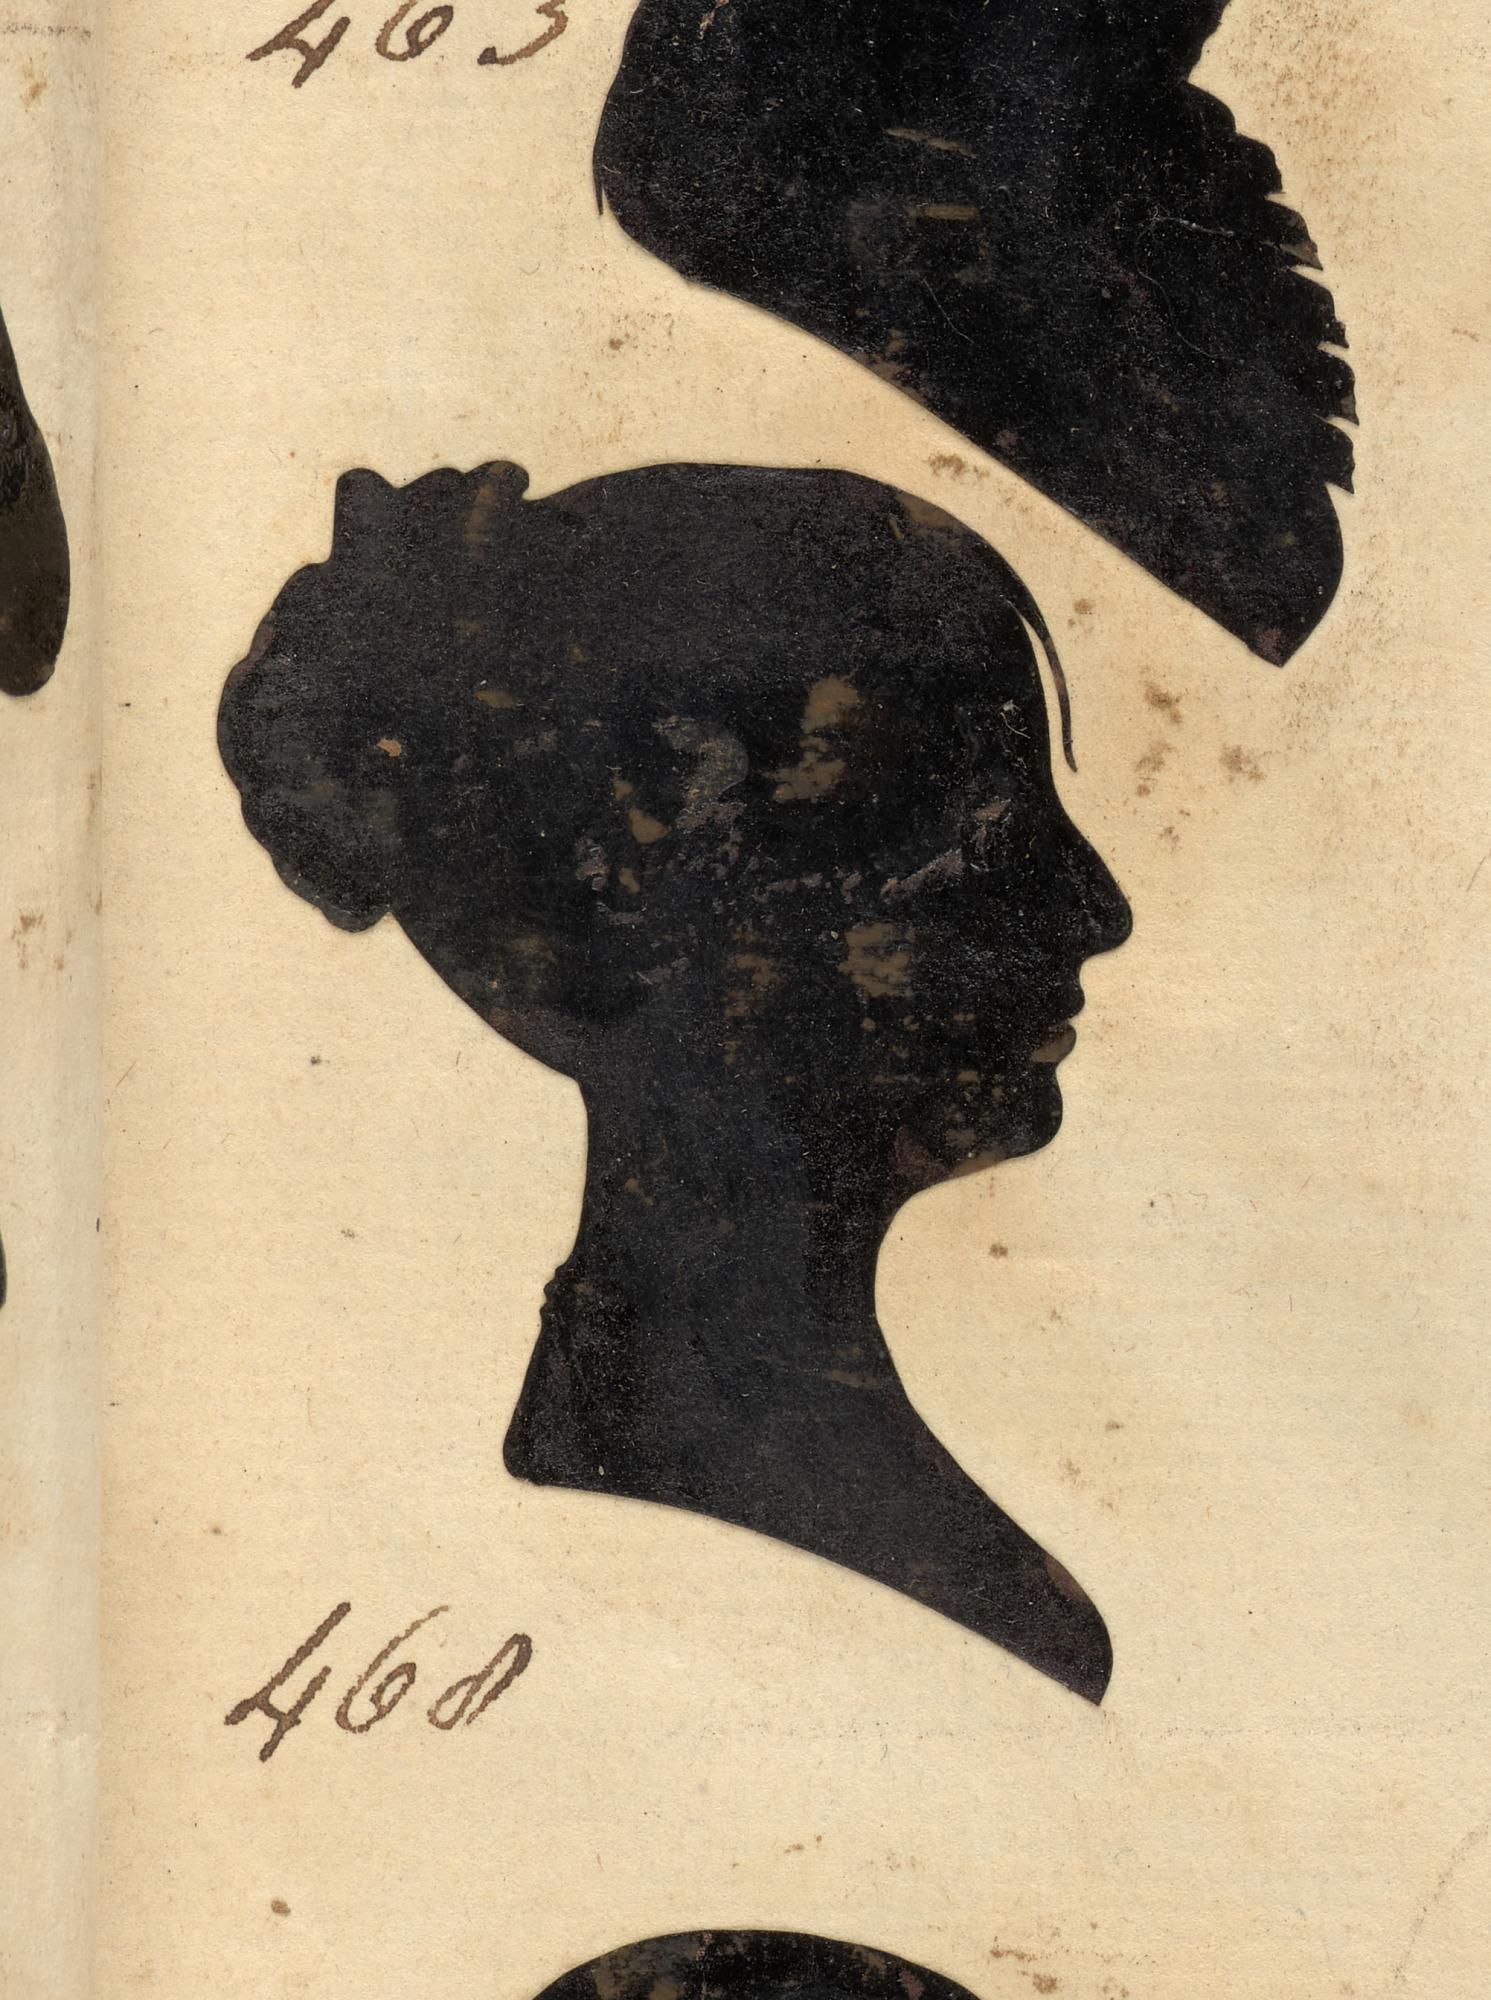 463
468